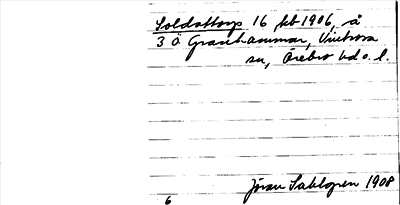 Soldattorp 16 fbt 1906, å
3 Ö Granhammar, Vintrosa
sn, Örebro hd o. l.
Jöran Sahlgren 1908
6